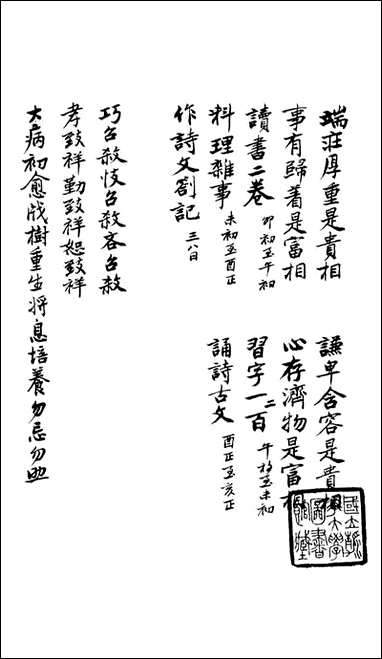 端莊厚重是貴相
謙卑含容是貴相
事有歸着是富相
心存濟物是富相
讀書二卷 卯初至午初
習字一二百 午初至未初
料理雜事 未初至酉正
誦詩古文 酉正至亥正
作詩文劄記 三八日
巧召殺忮召殺吝召殺
孝致祥勤致祥恕致祥
大病初愈戕樹重生將息培養勿忘勿助
國立 大學圖書館